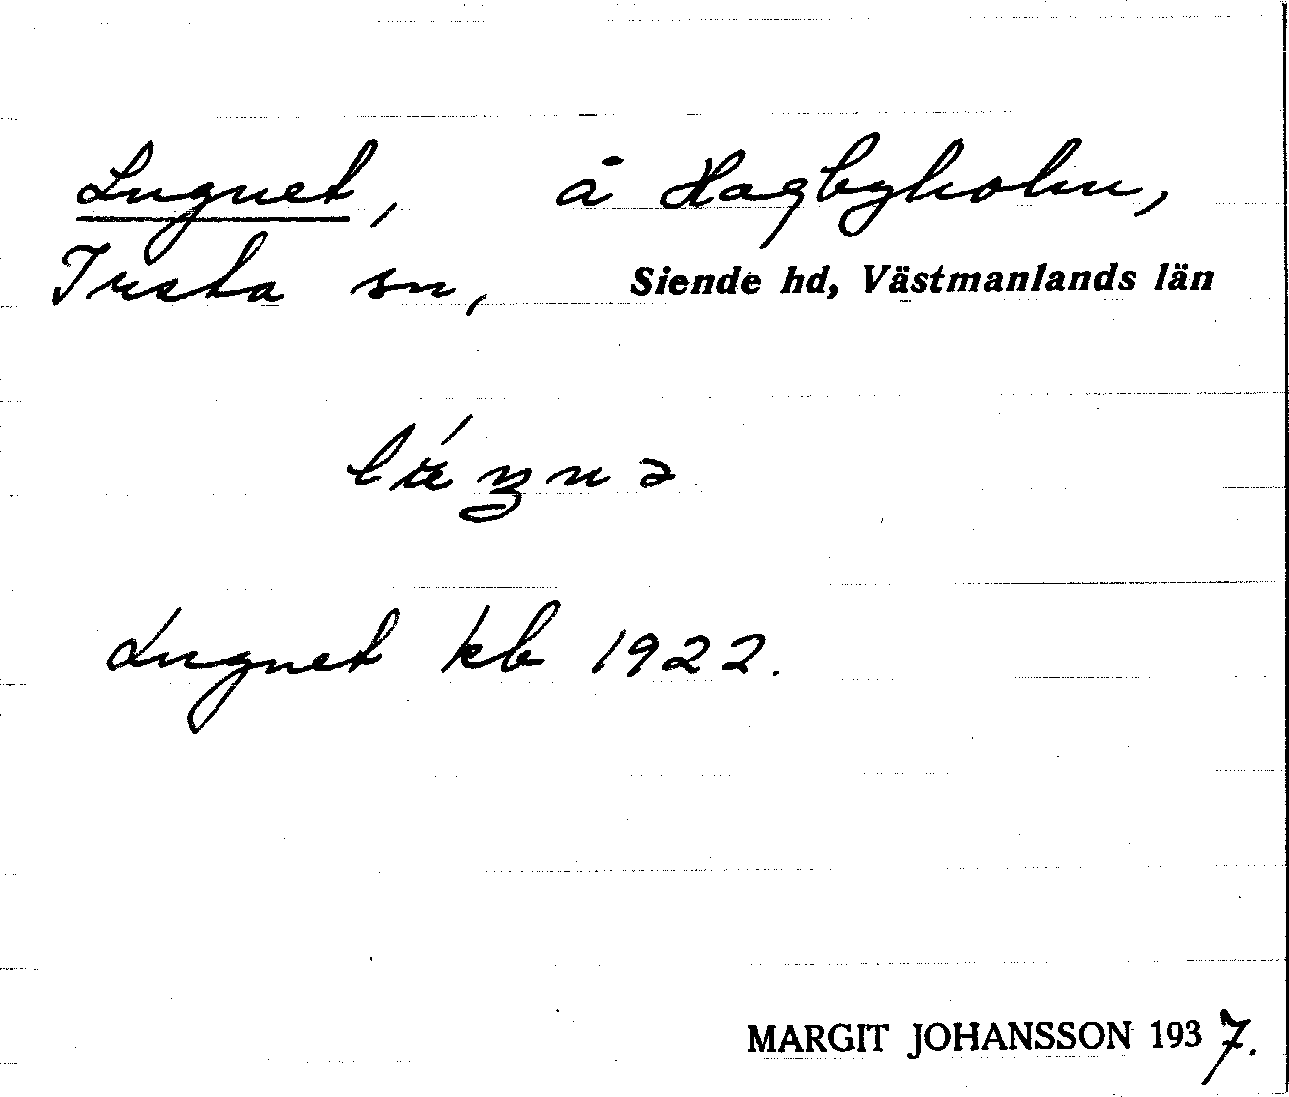 Lugnet, å Hagbyholm,
Irsta sn, Siende hd, Västmanlands län
Lugnet kb 1922.
MARGIT JOHANSSON 1937.